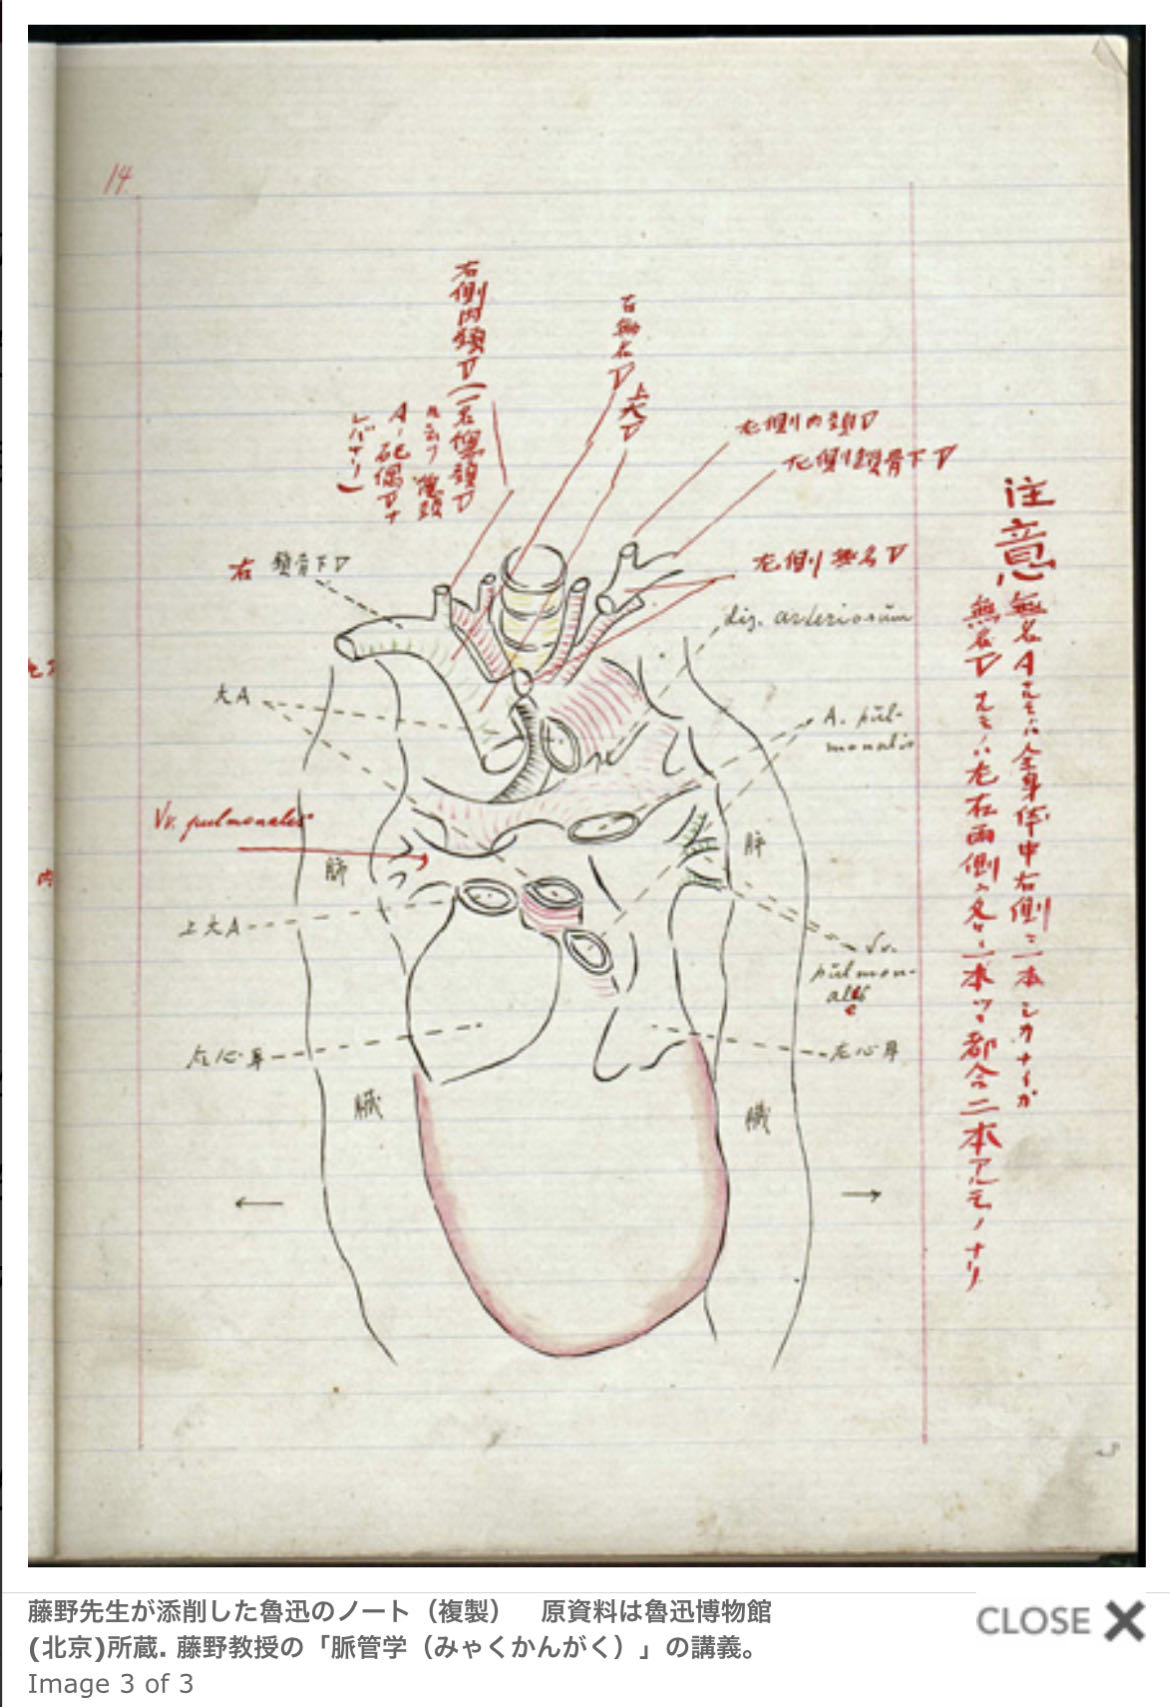 14.
右側内頸V(一名總頸V
ト云フ 總頸
Aノ死偶Vナ
レバナリ)
右無名V
上大V
左側内頸V
左側鎖骨下V
左側無名V
右 鎖骨下V
lig. arteriosum
大A
A. pul-
monalis
Vv. pulmonales
肺
肺
上大A
Vv.
pulmon-
ales
e
右心耳
左心耳
臓
臓
注意
無名Aナルモノハ全身体中右側ニ一本シカナイガ
無名Vナルモノハ左右両側ニ各々一本ヅツ都合二本アルモノナリ
内
藤野先生が添削した魯迅のノート（複製）　原資料は魯迅博物館
(北京)所蔵. 藤野教授の「脈管学（みゃくかんがく）」の講義。
Image 3 of 3
CLOSE